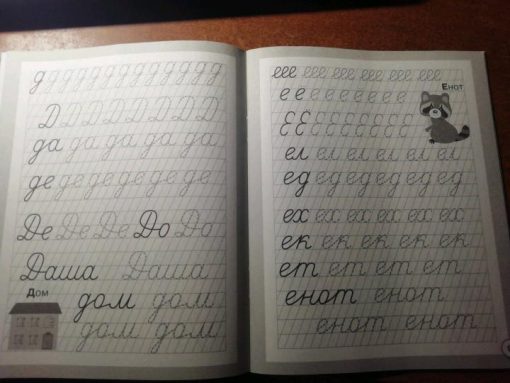 д д д д д д д д д д д д д
Д Д Д Д Д Д Д Д
да да да да да да
де де де де де де
Де Де Де До До
Даша Даша
Дом
дом дом
дом дом
еее еее еее еее еее еее
Енот
е е е е е е е е
Е Е Е Е Е Е Е Е
ел ел ел ел ел ел
ед ед ед ед ед ед ед
ех ех ех ех ех ех
ек ек ек ек ек ек
ет ет ет ет ет
енот енот
енот енот